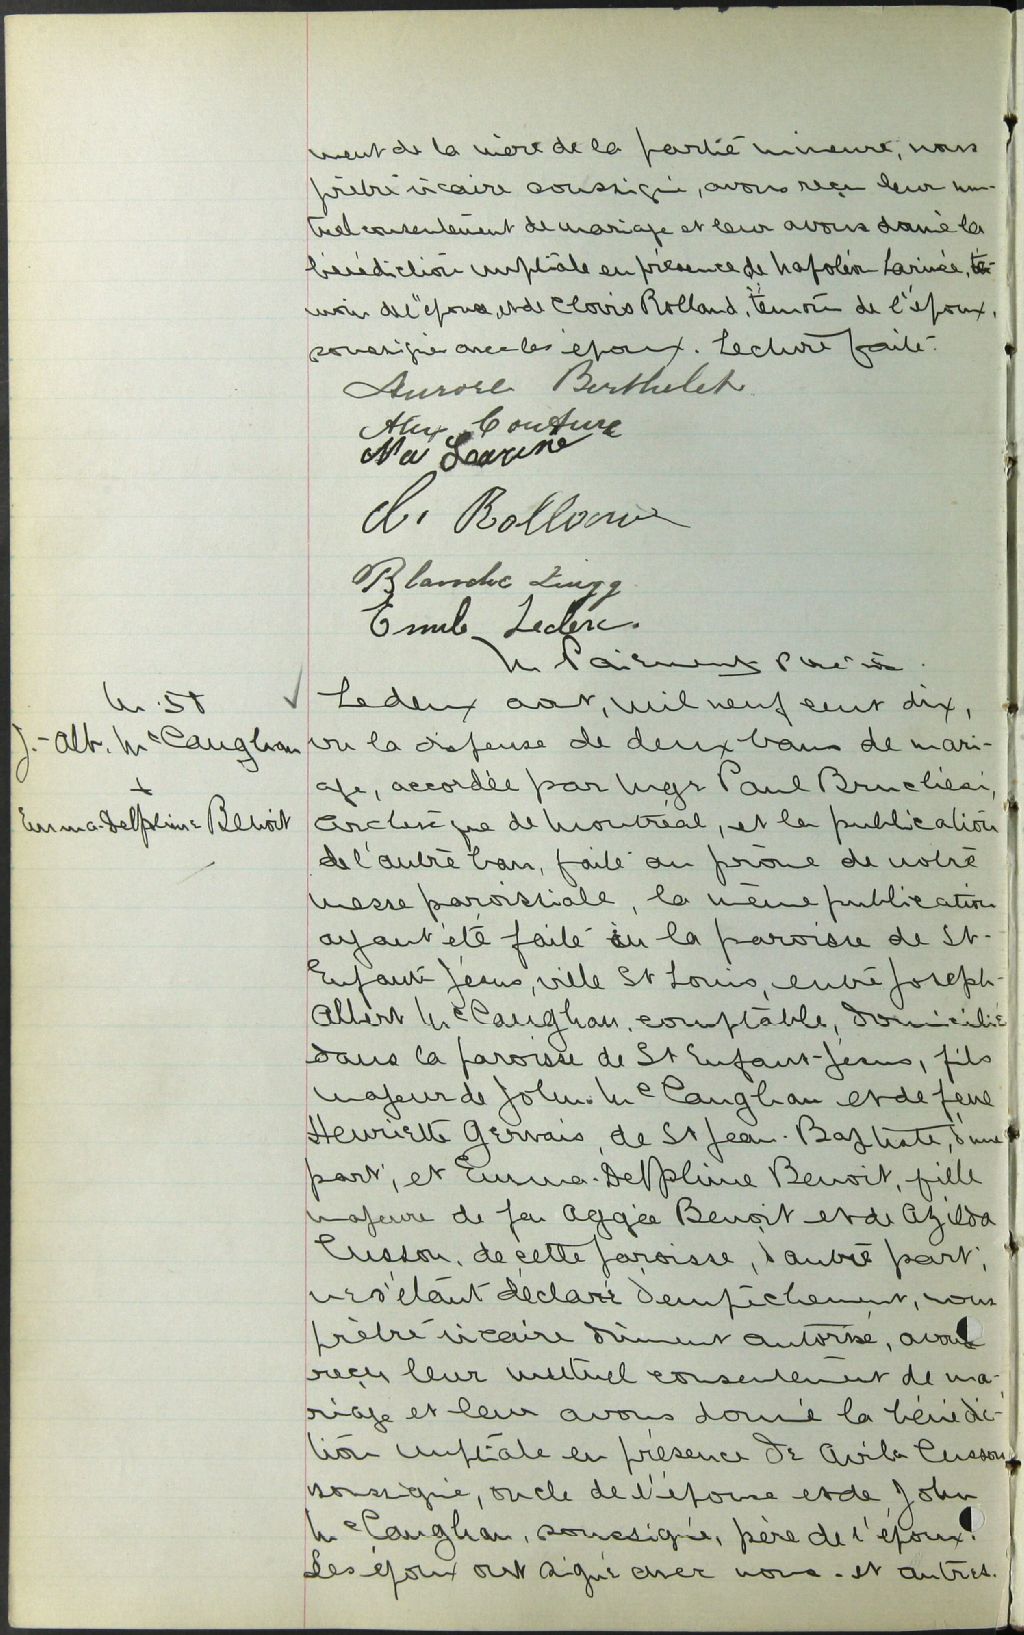 ment de la mère de la partie mineure, nous
prêtre vicaire soussigné, avons reçu leur mu-
tuel consentement de mariage et leur avons donné la
bénédiction nuptiale en présence de Napoléon Larivée, té-
moin de l'épouse, et de Clovis Rolland, témoin de l'époux,
soussignés avec les époux. Lecture faite.
Aurore Berthelet
Alex Couture
Na Larivé
Cl. Rolland
Blanche Zingg
Emile Leclerc.
Paiement
M. 58
J.-Alb. McCaughan
+
Emma-Delphine Benoit
Le deux aout, mil neuf cent dix,
vu la dispense de deux bans de mari-
age, accordée par Mgr Paul Bruchési,
archevêque de Montréal, et la publication
de l'autre ban, faite au prône de notre
messe paroissiale, la même publication
ayant été faite en la paroisse de St-
Enfant Jésus, ville St Louis, entre Joseph-
Albert McCaughan, comptable, domicilié
dans la paroisse de St Enfant-Jésus, fils
majeur de John McCaughan et de feue
Henriette Gervais, de St Jean-Baptiste, d'une
part, et Emma-Delphine Benoit, fille
majeure de feu Aggée Benoit et de Azilda
Cusson, de cette paroisse, d'autre part,
ne s'étant déclaré d'empêchement, nous
prêtre vicaire dûment autorisé, avons
reçu leur mutuel consentement de ma-
riage et leur avons donné la bénédic-
tion nuptiale en présence de Avila Cusson
soussigné, oncle de l'épouse et de John
McCaughan, soussigné, père de l'époux.
Les époux ont signé avec nous - et autres.